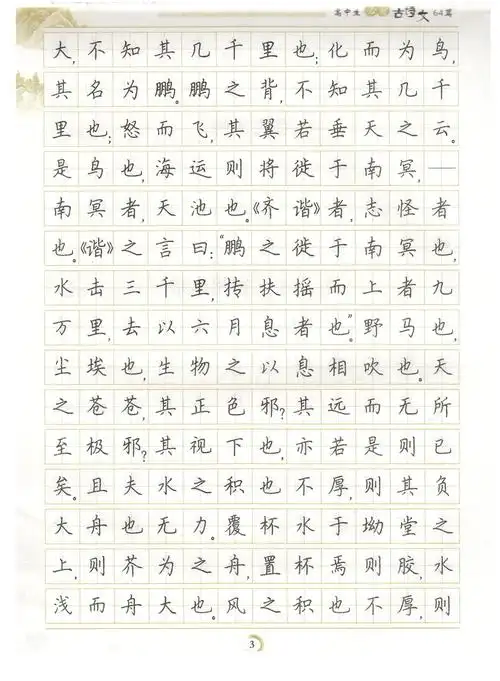 高中生 古诗文 64篇
大,不知其几千里也;化而为鸟,
其名为鹏。鹏之背,不知其几千
里也;怒而飞,其翼若垂天之云。
是鸟也,海运则将徙于南冥,——
南冥者,天池也。《齐谐》者,志怪者
也。《谐》之言曰:“鹏之徙于南冥也,
水击三千里,抟扶摇而上者九
万里,去以六月息者也。”野马也,
尘埃也,生物之以息相吹也。天
之苍苍,其正色邪?其远而无所
至极邪?其视下也,亦若是则已
矣。且夫水之积也不厚,则其负
大舟也无力。覆杯水于坳堂之
上,则芥为之舟,置杯焉则胶,水
浅而舟大也。风之积也不厚,则
3